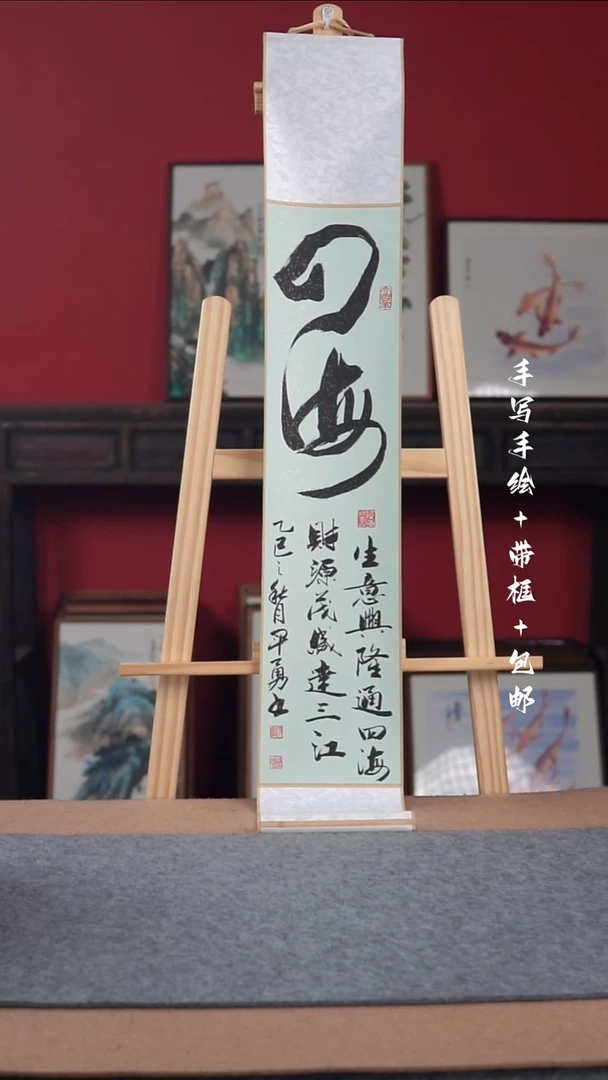 四海
生意興隆通四海
財源茂盛達三江
乙巳之秋月平勇书
手写手绘+带框+包邮